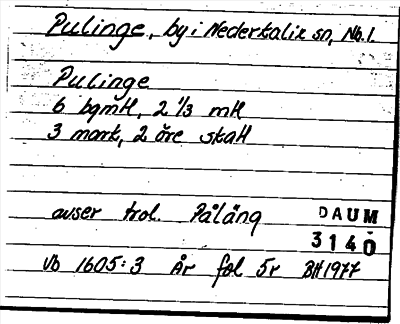 Pulinge, by i Nederkalix sn, Nb.l.
Pulinge
6 bgmtl, 2 1/3 mtl
3 mark, 2 öre skatt
avser trol. Påläng
DAUM
3140
Vb 1605:3 År fol 5r BH 1977